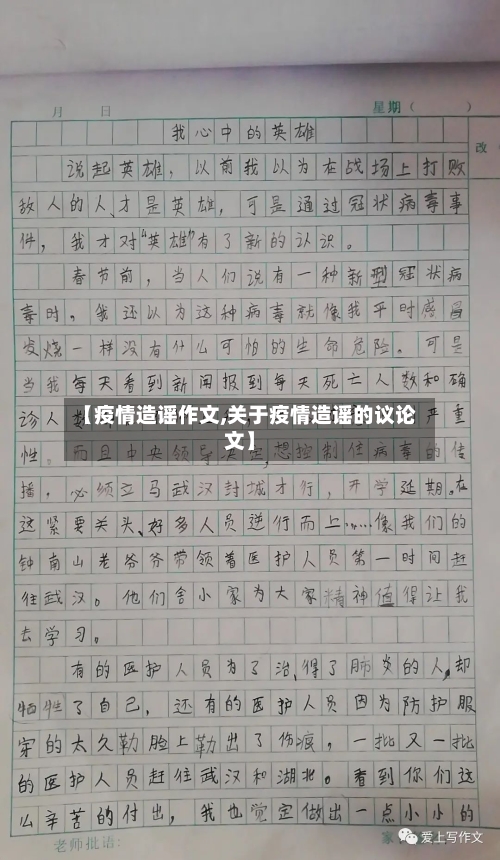 月 日 星期（ ）
改
我心中的英雄
说起英雄，以前我以为在战场上打败
敌人的人、才是英雄，可是通过冠状病毒事
件，我才对“英雄”有了新的认识。
春节前，当人们说有一种新型冠状病
毒时，我还以为这种病毒就像我平时感冒
发烧一样没有什么可怕的生命危险。可是
当我每天看到新闻报到每天死亡人数和确
诊人数 严重
【疫情造谣作文,关于疫情造谣的议论
文】
性。而且中央领导决定，想控制住病毒的传
播，必须立马武汉封城才行，开学延期。在
这紧要关头、好多人员逆行而上……像我们的
钟南山老爷爷带领着医护人员第一时间赶
往武汉。他们舍小家为大家精神值得让我
去学习。
有的医护人员为了治、得了肺炎的人、却
牺牲了自己，还有的医护人员因为防护服
穿的太久勒脸上勒出了伤痕，一批又一批
的医护人员赶往武汉和湖北。看到你们这
么辛苦的付出，我也觉定做出一点小小的
老师批语： 家
爱上写作文